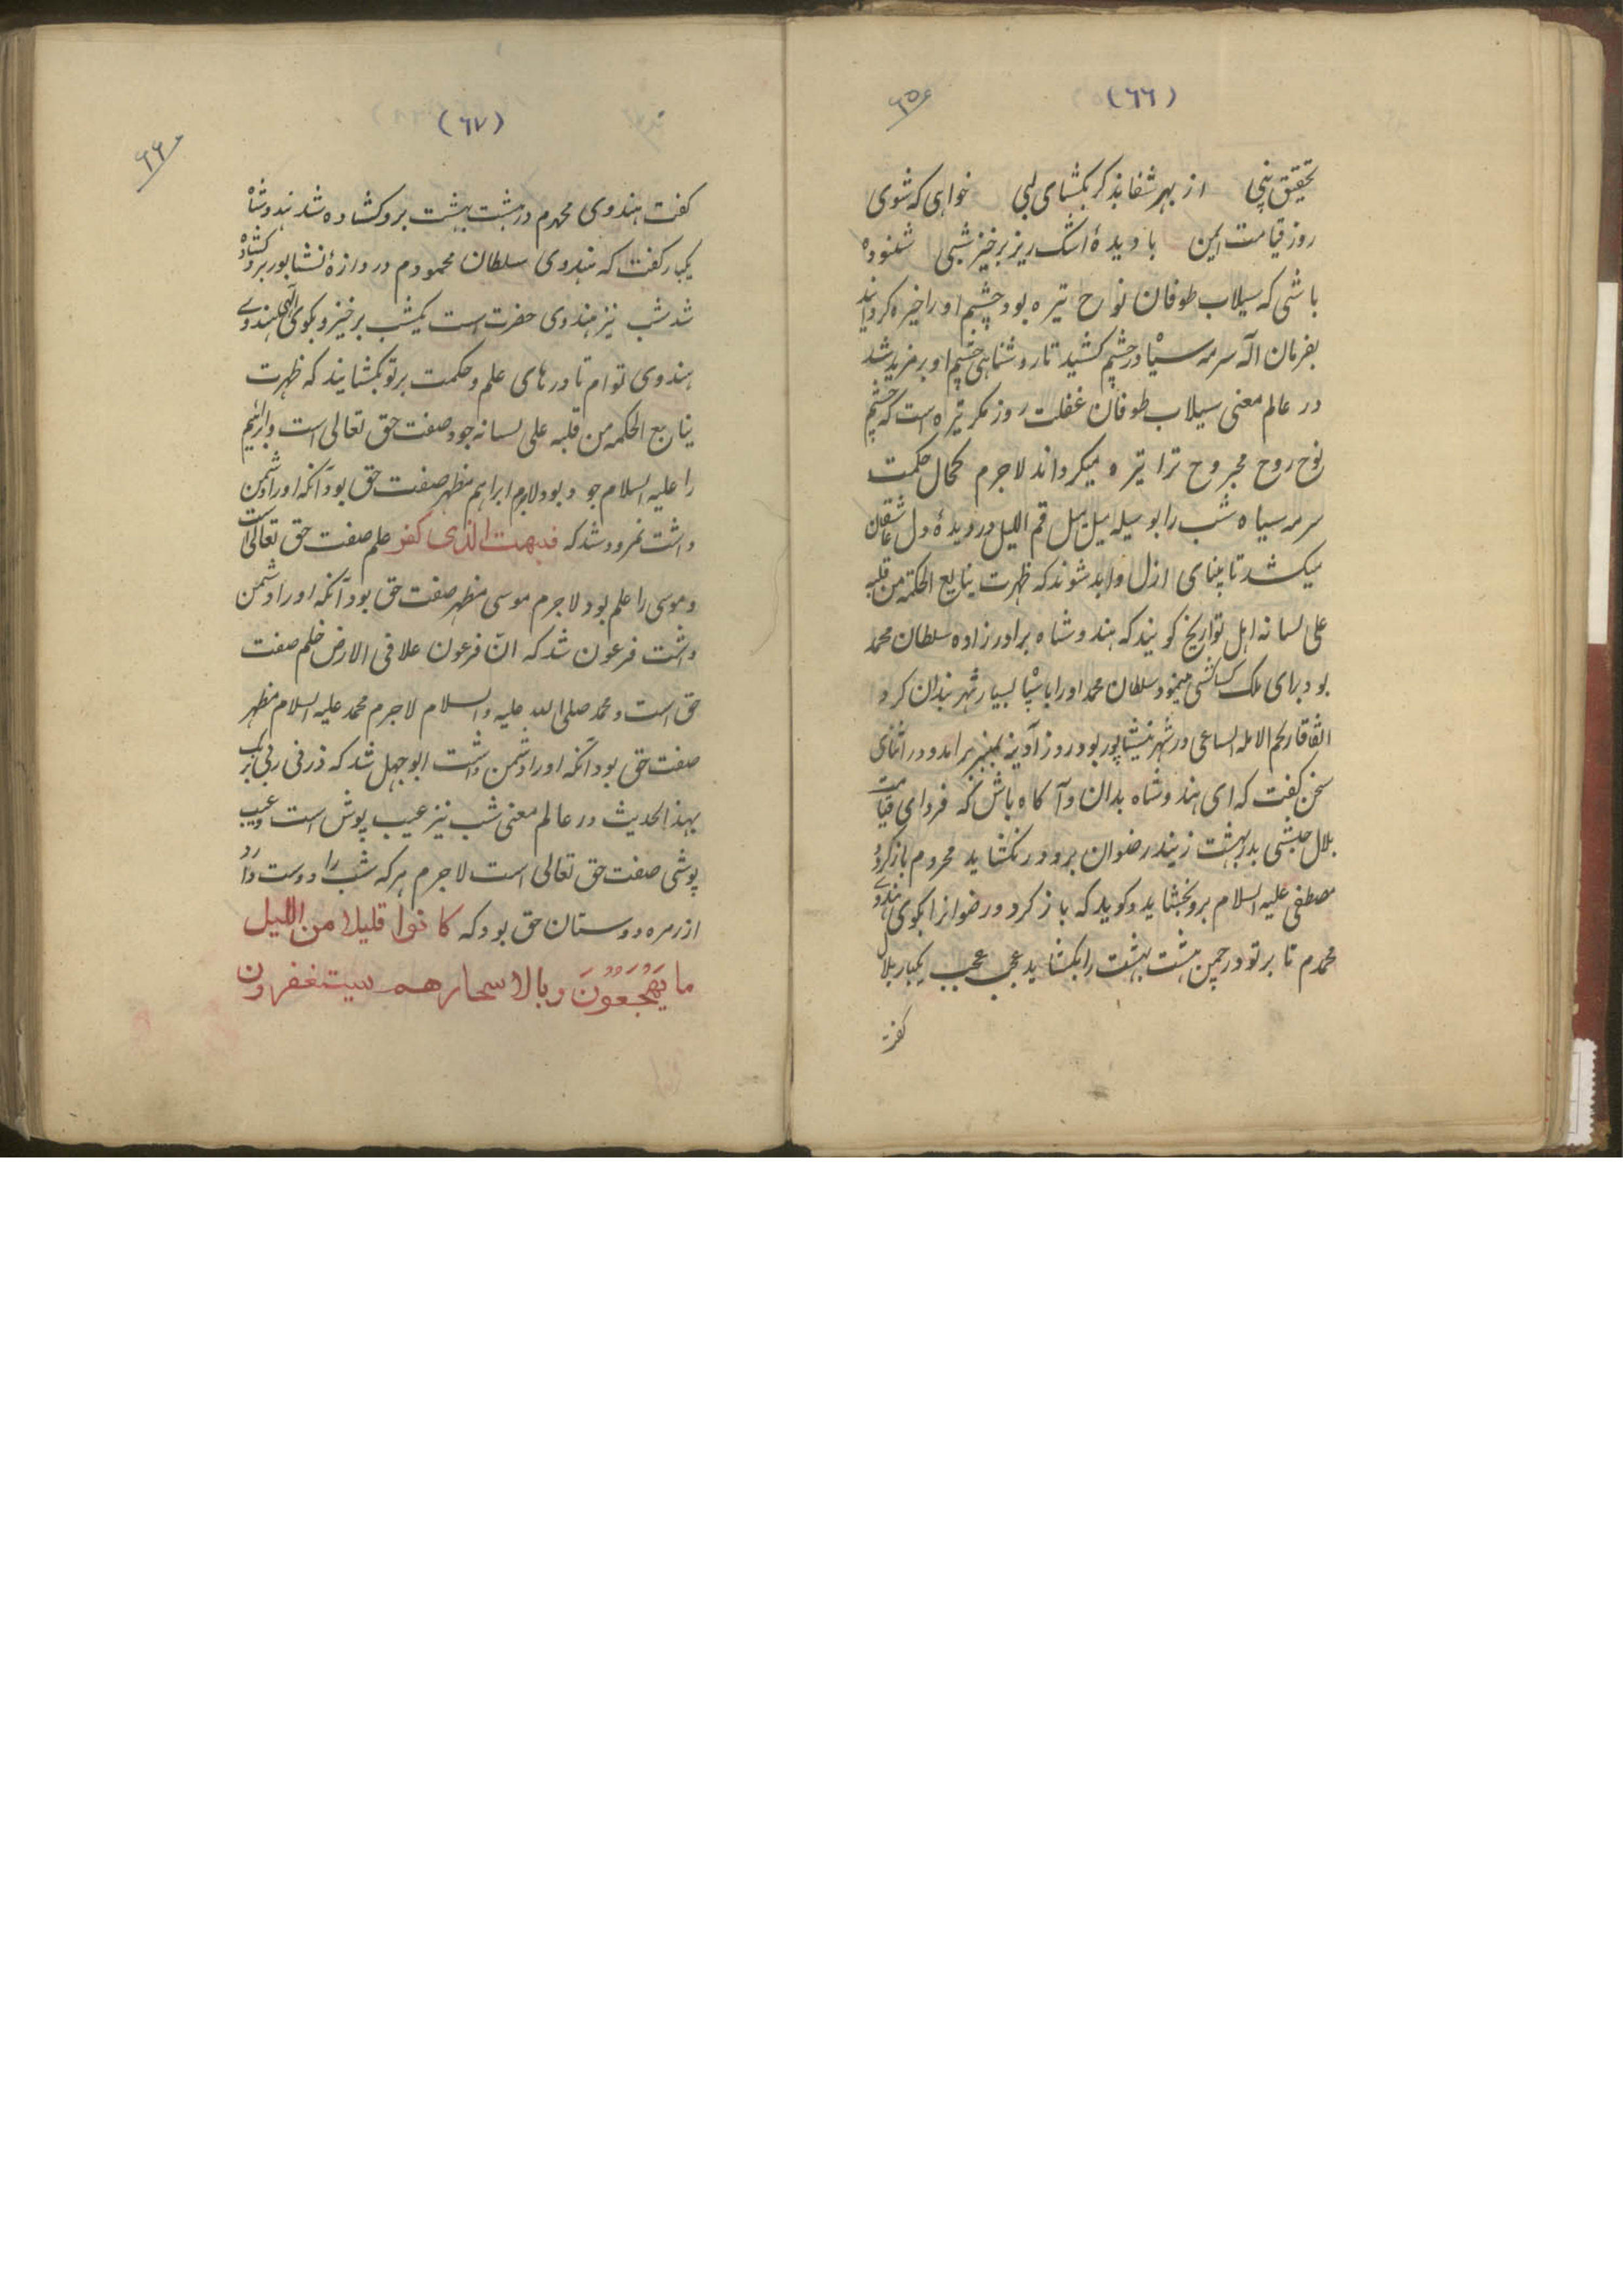 (٦٦)
٦٥
تحقیق بنی از بهر شفا بذکر بکشای لبی خواهی که شوی
روز قیامت ایمن با دیدهٔ اشک ریز برخیز شبی شنوده
باشی که سیلاب طوفان نوح تیره بود چشم او را خیره کرداند
بفرمان اله سرمه سیاه در چشم کشید تا روشناهی چشم او بر مزید شد
در عالم معنی سیلاب طوفان غفلت روز مکر تیره است که چشم
نوح روح مجروح ترا تیره میکرداند لاجرم کحال حکمت
سرمه سیاه شب را بوسیله میل میل قم اللیل در دیدهٔ دل عاشقان
میکشد تا بینای ازل و ابد شوند که ظهرت ینابیع الحکمة من قلبه
علی لسانه اهل تواریخ کویند که هندوشاه برادرزاده سلطان محمد
بود برای ملک کشی مینمود سلطان محمد او را با سپاه بسیار شهر بندان کرد
اتفاقا رحم الامله الساعی در شهر نیشاپور بود روز آدینه بمنبر برامد و در اثنای
سخن کفت که ای هندوشاه بدان و آکاه باش که فردای قیامت
بلال حبشی بدر بهشت زنید رضوان برو در نکشاید محروم باز کردد
مصطفی علیه السلام برو بخشاید و کوید که باز کرد و رضوانرا بکوی هندوی
محمدم تا بر تو در چمن هشت بهشت را بکشاید عجب عجب یکبار بلال
کفت
(٦٧)
٦٦
کفت هندوی محمدم در هشت بهشت برو کشاده شد هندوشاه
یکبار کفت که هندوی سلطان محمودم دروازهٔ نشابور برو کشاده
شد شب نیز هندوی حضرت است یکشب برخیز و بکوی الهی هندوی
هندوی توام تا درهای علم و حکمت بر تو بکشایند که ظهرت
ینابع الحکمه من قلبه علی لسانه جود صفت حق تعالی است و ابراهیم
را علیه السلام جود بود لاجرم ابراهیم مظهر صفت حق بود آنکه او را دشمن
داشت نمرود شد که فبهت الذی کفر علم صفت حق تعالی است
و موسی را علم بود لاجرم موسی مظهر صفت حق بود آنکه او را دشمن
داشت فرعون شد که انّ فرعون علا فی الارض خلم صفت
حق است و محمد صلی الله علیه و السلام لاجرم محمد علیه السلام مظهر
صفت حق بود آنکه او را دشمن داشت ابوجهل شد که ذرنی
بهذا الحدیث در عالم معنی شب نیز عیب پوش است و عیب
پوشی صفت حق تعالی است لاجرم هر که شب را دوست دارد
از زمره دوستان حق بود که کانوا قلیلا من اللیل
ما یَهجَعُونَ وبالاسحارهم یستغفرون